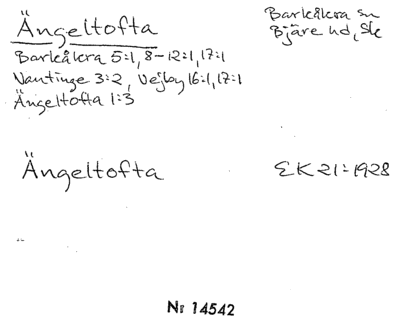 Ängeltofta
Barkåkra sn
Bjäre hd, Sk
Barkåkra 5:1, 8-12:1, 17:1
Vantinge 3:2, Vejby 16:1, 17:1
Ängeltofta 1:3
Ängeltofta
EK 21:1928
Nr 14542